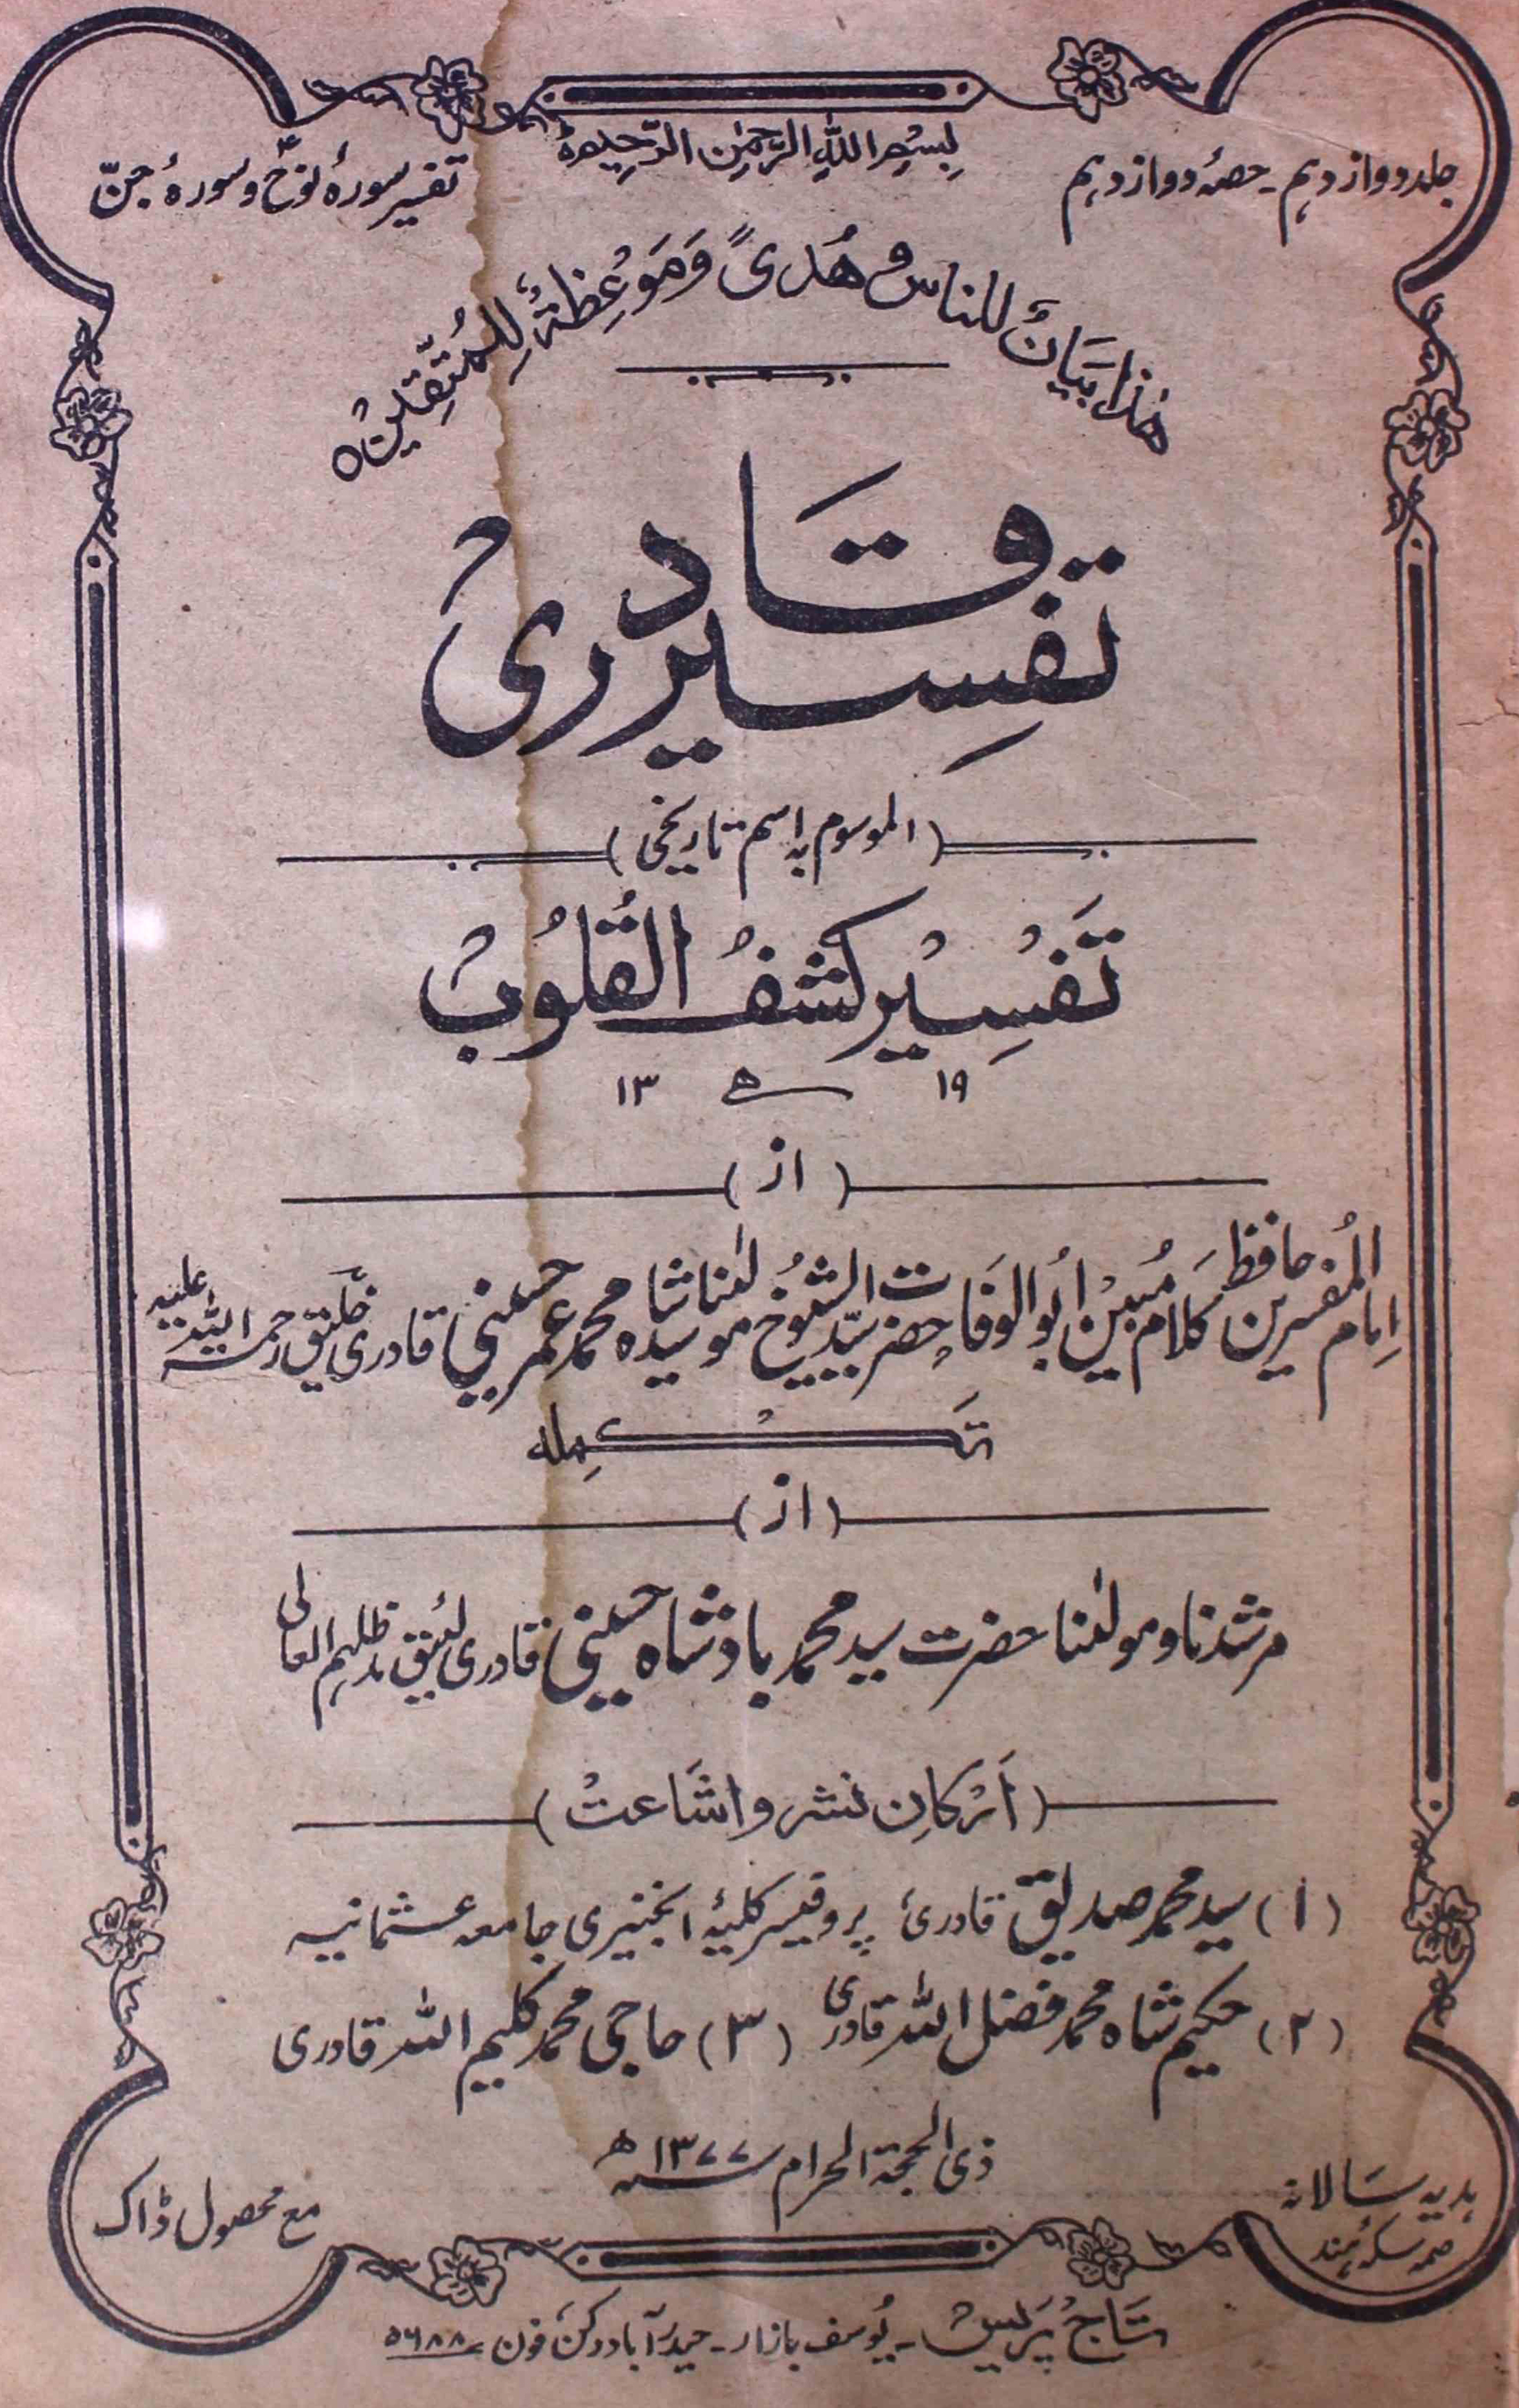 بِسْمِ اللهِ الرَّحْمٰنِ الرَّحِیْمِ ہ
جلد دوازدہم۔حصۂ دوازدہم
تفسیر سورۂ نوحؑ و سورۂ جنّ
ھٰذَا بَیَانٌ للناس و ھُدیً وَمَوْعِظَۃٌ لِلْمُتَّقِیْنَ ہ
تفسِیر قَادری
(الموسوم بہ اسم تاریخی)
تَفْسِیْر کشفُ القُلُوبْ
۱۹ ھ ۱۳
(از)
اِمام المُفسرین حافظ کلام مُبیْن اَبُو الوَفَا حضرت سیّد الشیُوخ مولٰنا سید شاہ محمد عمر حسینی قادری خلیق رحمۃ اللہ علیہ
تَکْمِلہ
(از)
مرشدنا و مولٰنا حضرت سید محمد بادشاہ حسینی قادری لئیق مد ظلہم العالی
(اَرْکانِ نشر و اشَاعتْ)
(۱) سید محمد صدیق قادری پروفیسر کلیۂ انجنیری جامعہ عثمانیہ
(۲) حکیم شاہ محمد فضل اللہ قادری (۳) حاجی محمد کلیم اللہ قادری
ذی الحجۃ الحرام سنہ ۱۳۷۷ھ
ہدیہ سَالانہ
سکۂ ہند
مع محصول ڈاک
تاجُ پَریسْ۔یُوسف بازار۔حیدرآباد دکن فون ۵۶۸۸